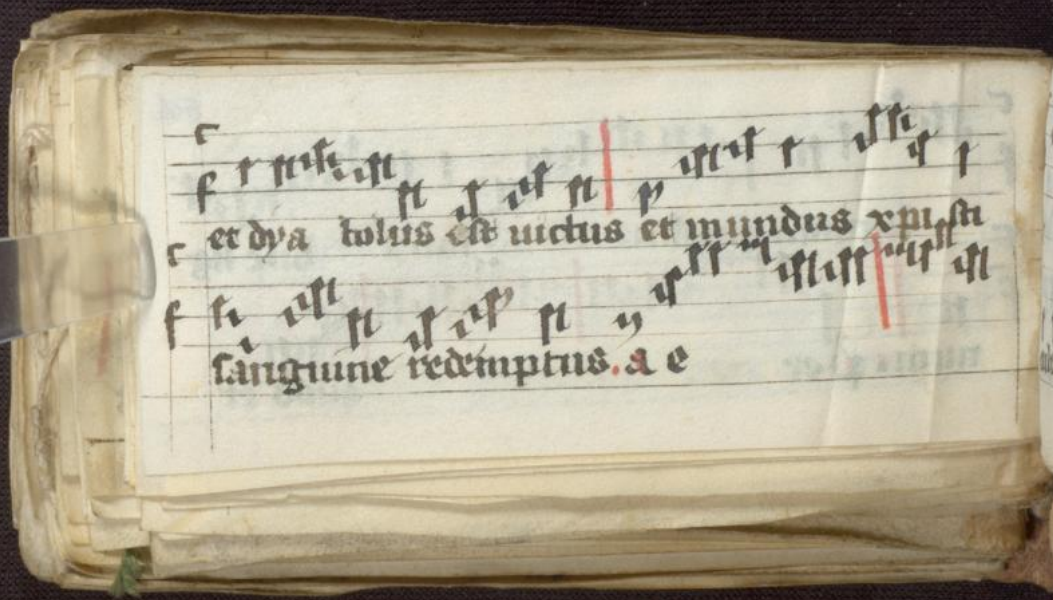 et dya bolus est uictus et mundus xpisti
sanguine redemptus. a e